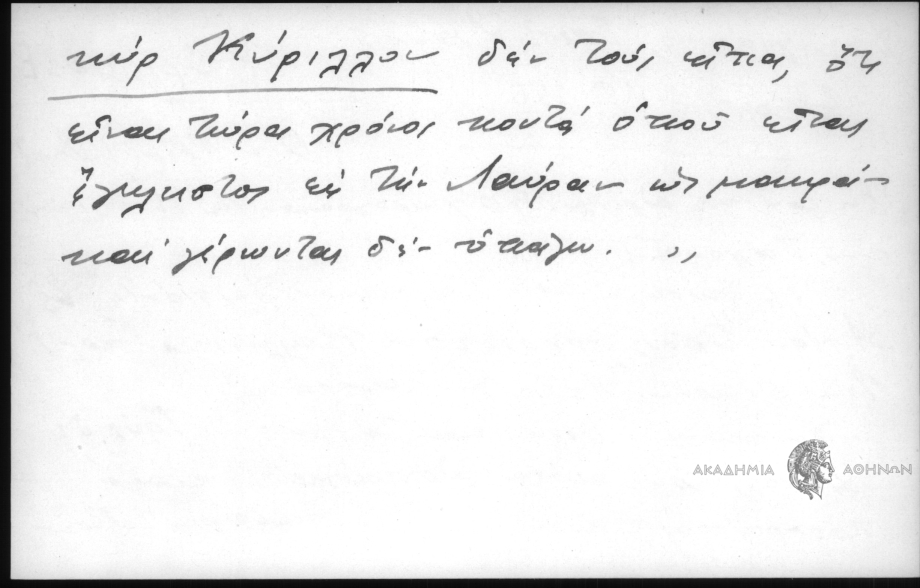 κύρ Κύριλλον δέν τούς εἶπα, ὅτι
εἶναι τώρα χρόνος κοντά ὁποῦ εἶναι
ἔγκλειστος εἰς τήν Λαύραν ὡς μακρά-
καί γέρωντας δέν ὑπάγω. ,,
ΑΚΑΔΗΜΙΑ ΑΘΗΝΩΝ